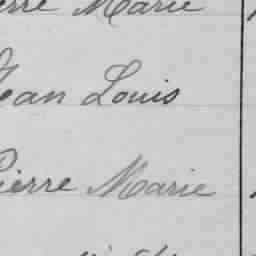 erre Marie
Jean Louis
Pierre Marie